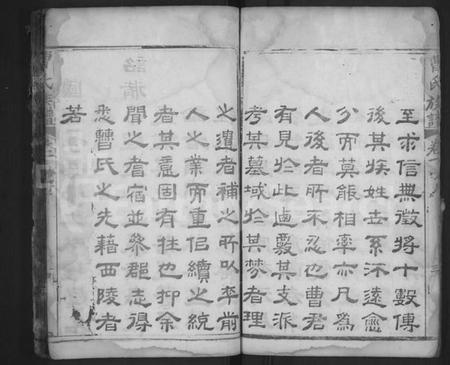 曹氏族譜
至求信無徵將十數傳
後其族姓世系不遠愈
分而莫能相率亦凡為
人後者所不忍也曹君
有見於此遍覈其支派
考其墓域於其勞者理
之遺者補之所以率前
人之業而重侶續之統
者其意固有在也抑余
聞之耆宿並參郡志得
悉曹氏之先藉西陵者
若